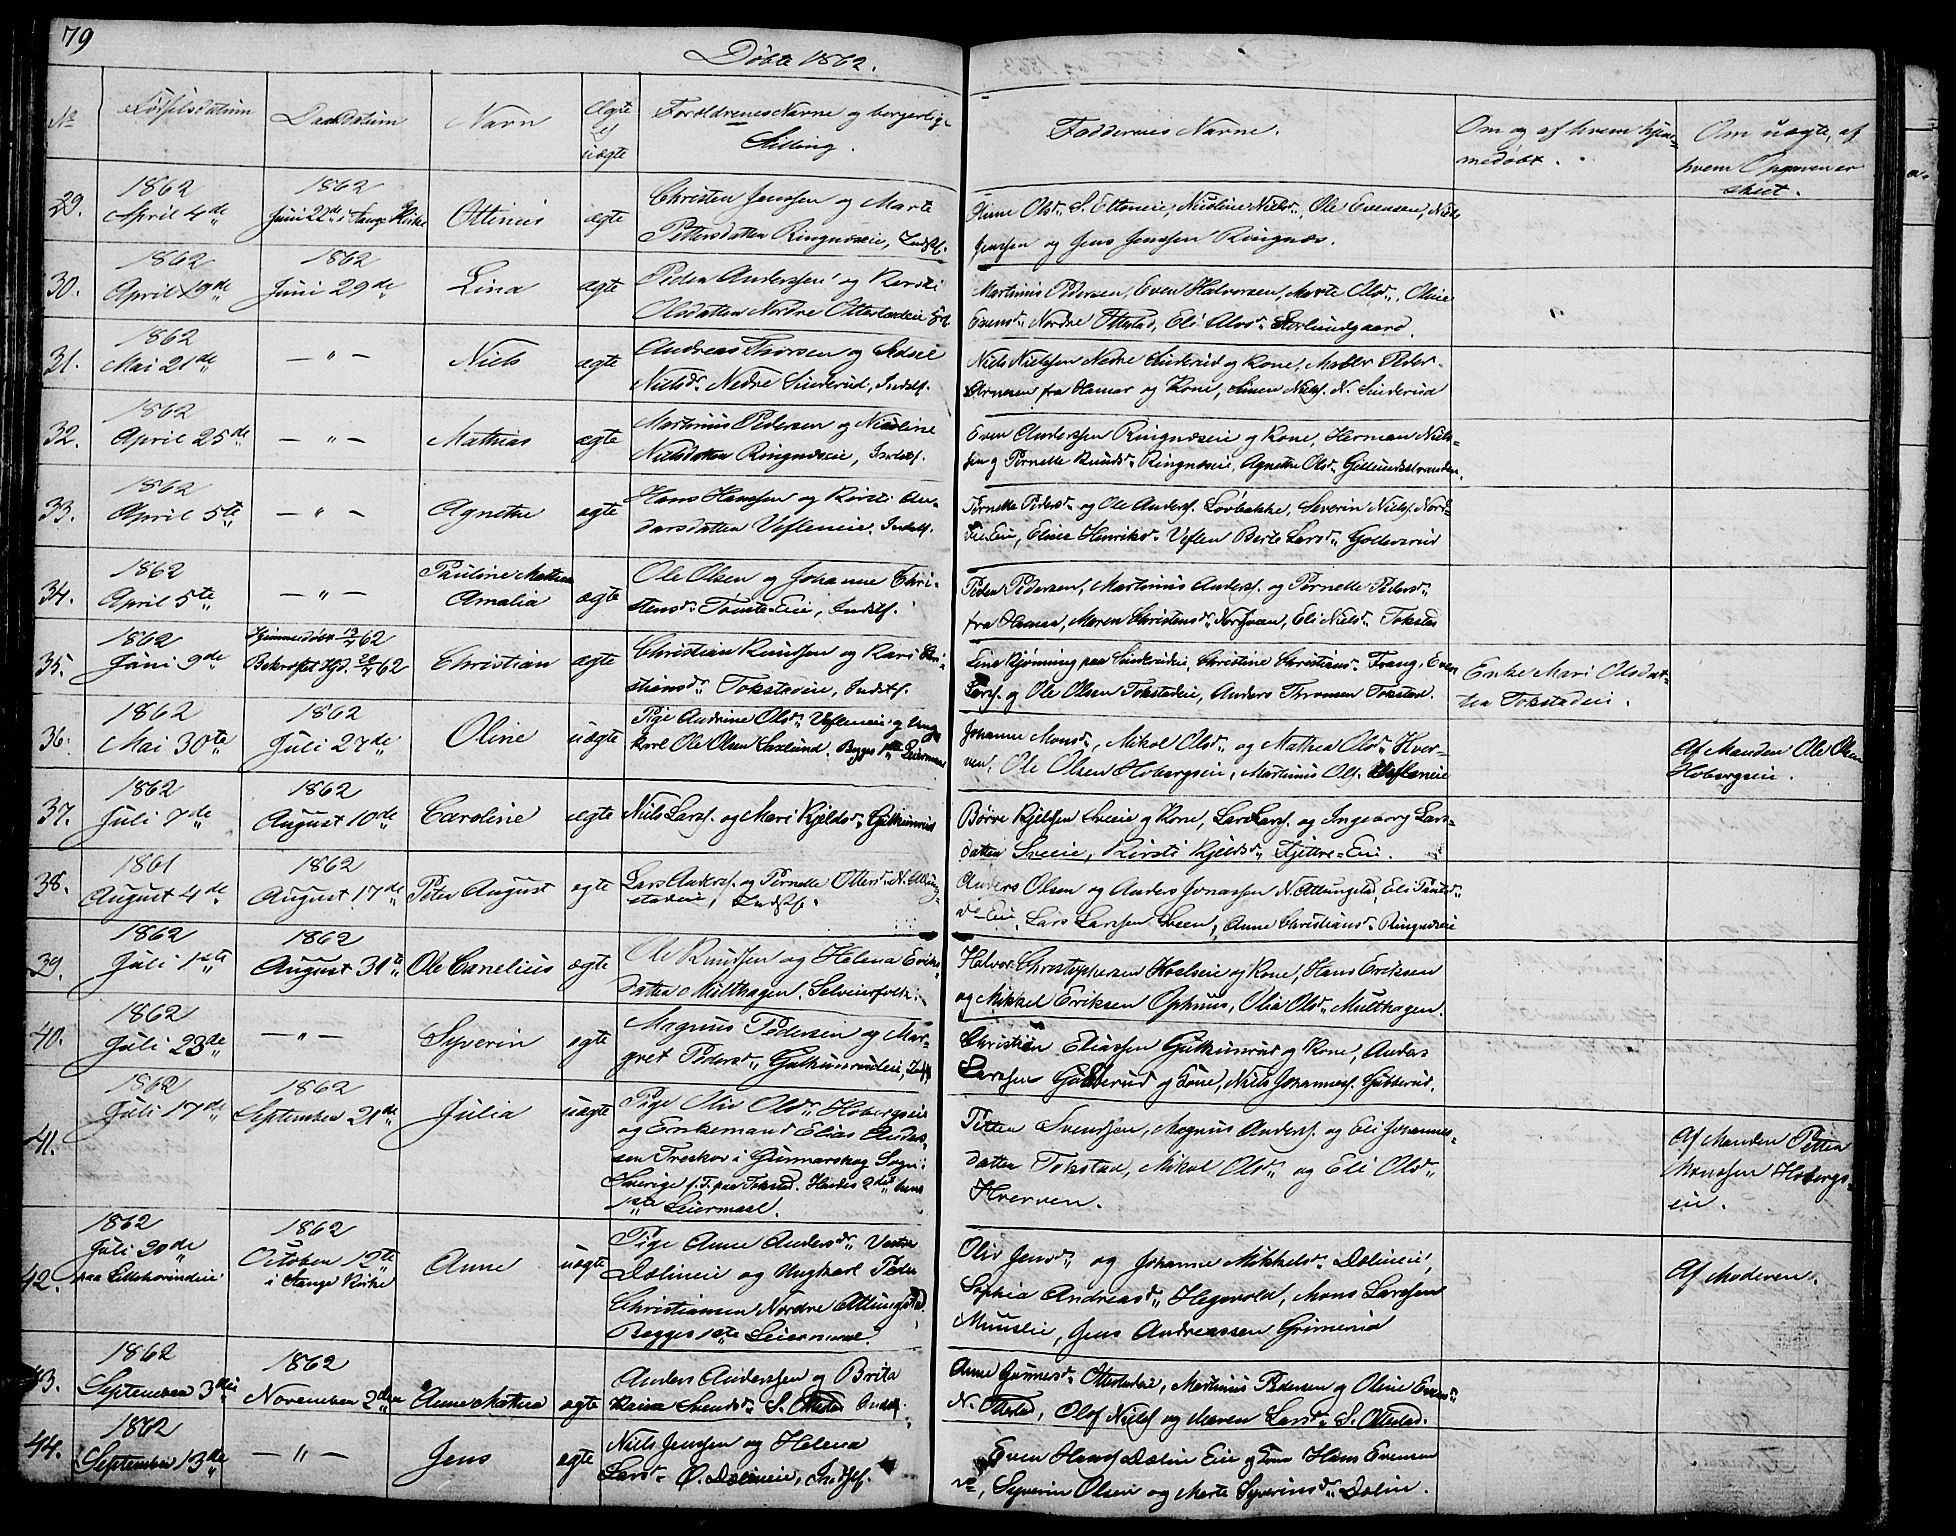 79
Døbte 1862.
No
Fødselsdatum
Daabsdatum
Navn
Ægte
el
uægte
Forældrenes Navne og borgerlige
Stilling.
Faddernes Navne.
Om og af hvem hjem-
medøbt.
Om uægte, af
hvem Opgaven er
skeet.
29.
1862
April 4de
1862
Juni 22de i Stange Kirke
Ottinus
ægte
Christen Jensen og Marte
Pettersdatter Ringnæseie, Indst.
Olsd. S. Ottomeie, Nicoline Nielsd., Ole Evensen, Niels
Jensen og Jens Jensen Ringnæs.
30.
1862
April 19de
1862
Juni 29de
Lina
ægte
Peder Anderssen og Kersti
Olsdatter Nordre Ottestadeie
Martinius Pedersen, Even Halvorsen, Marte Olsd., Oline
Evensd. Nordre Ottestad, Eli Olsd.
31.
1862
Mai 21de
— " —
Niels
ægte
Andreas Thorsen og Sidsel
Nielsd. Nedre Sinderud, Indst.
Niels Nielssen Nedre Sinderud og Kone, Maler Peder
Arnesen fra Hamar og Kone, Simen Nielsf. N. Sinderud
32.
1862
April 25de
— " —
Mathias
ægte
Martinius Pedersen og Nicoline
Nielsdatter Ringnæseie, Indst.
Even Anderssen Ringnæseie og Kone, Herman Niels-
sen og Pernelle Knudsd. Ringnæseie, Agnethe Olsd.
33.
1862
April 5te
— " —
Agnethe
ægte
Hans Hanssen og Kirsti An-
darsdatter Vefleneie, Indst.
Pernelle Pedersd. og Ole Andersf. Løvbakke, Severin Nielsf. Nord-
Eie, Eline Henriksd. Veflen Berte Larsd. Golleverud
34.
1862
April 5te
— " —
Pauline Mathea
Amalia
ægte
Ole Olsen og Johanne Chri-
stensd. Eie, Indst.
Peder Pedersen, Martinius Andersf. og Pernelle Pedersd.
fra Hamar, Maren Christensd. Nordsveen, Eli Nielsd. Tokstad
35.
1862
Juni 9de
Hjemmedøbt 13/7 62
Bekræftet Hjd. 62
Christian
ægte
Christian Knudssen og Kari Kri-
stiansd. Tokstadeie, Indst.
Lena Kjønning paa Sinderudeie, Christine Christiansd. Frang, Even
Larsf. og Ole Olsen Tokstadeie, Anders Thronsen Tokstad.
Enke Mari Olsdat-
ter Tokstadeie.
36.
1862
Mai 30te
1862
Juli 27de
Oline
uægte
Pige Andrine Olsd. Vefleneie og Ung-
karl Ole Olsen Saxlund. Begges 1ste Leiermaal
Johanne Monsd., Mikol Olsd. og Mathea Olsd. Hver-
ven, Ole Olsen Hobergseie, Martinius Olsf. Vefleneie
Af Manden Ole Olsen
Hobergseie.
37.
1862
Juli 7de
1862
August 10de
Caroline
ægte
Niels Larsf. og Mari Kjeldsd. Gukhusrud
Børre Kjelssen Sveeie og Kone, Lars Larsf. og Ingeborg Lars-
datter Sveeie, Kirsti Kjeldsd. Fjettre-Eie.
38.
1861
August 4de
1862
August 17de
Peter August
ægte
Lars Andersf. og Pernelle Ottersd. N. Attung-
stadeie, Indst.
Anders Olsen og Anders Jonassen N. Attungstad, Eli
Eie, Lars Larssen Sveen, Anne Christiansd. Ringnæseie
39.
1862
Juli 1ste
1862
August 31te
Ole Cornelius
ægte
Ole Knudssen og Helena Eriks-
datter Multhagen, Selveierfolk.
Halvor Christophersen Hoelseie og Kone, Hans Eriksen
og Mikkel Eriksen Ophuus, Olia Olsd. Multhagen.
40.
1862
Juli 23de
— " —
Syverin
ægte
Magnus Pedersen og Mar-
gret Pedersd. Gukhusrudeie,
Christian Eliassen Gukhusrud og Kone, Anders
Larssen Gubberud og Kone, Niels Johannesf. Gubberud.
41.
1862
Juli 17de
1862
September 21de
Julia
uægte
Pige Oliv Olsd. Hobergseie
og Enkemand Elias Anders-
sen Treskov i Gunnarskog Sogn i
Sverige f. T. paa Tokstad. Hendes 2det hans
1ste Leiermaal.
Petter Svendsen, Magnus Andersf. og Eli Johannes-
datter Tokstad, Mikol Olsd. og Eli Olsd.
Hverven.
Af Manden Petter
Monssen Hobergs-
eie.
42.
1862
Juli 20de
paa Lillehovindeie
1862
October 12te
i Stange Kirke
Anne
uægte
Pige Anne Andersd. Vestre
Dølineie og Ungkarl Peder
Christiansen Nordre Attungstad.
Begges 1ste Leiermaal
Oliv Jensd. og Johanne Mikkelsd. Dølineie,
Sophia Andreasd. Hegvold, Mons Larssen
Muuseie, Jens Andreassen Grimerud
Af Moderen.
43.
1862
September 3die
1862
November 2den
Anne Mathea
ægte
Anders Anderssen og Brita
Svendsd. S. Ottestad Indst.
Anne Gunnersd. Ottestadeie, Martinius Pedersen og Oline Evensd.
N. Ottestad, Olof Nielsf. og Maren Larsd. S. Ottestad.
44.
1862
September 13de
— " —
Jens
ægte
Niels Jenssen og Helena
Larsd. Ø. Dølineie, Indst.
Even Hansf. Dølin Eie og Kone Hans Evensen
Syverin Olsen og Marte Syverinsd. Dølin.